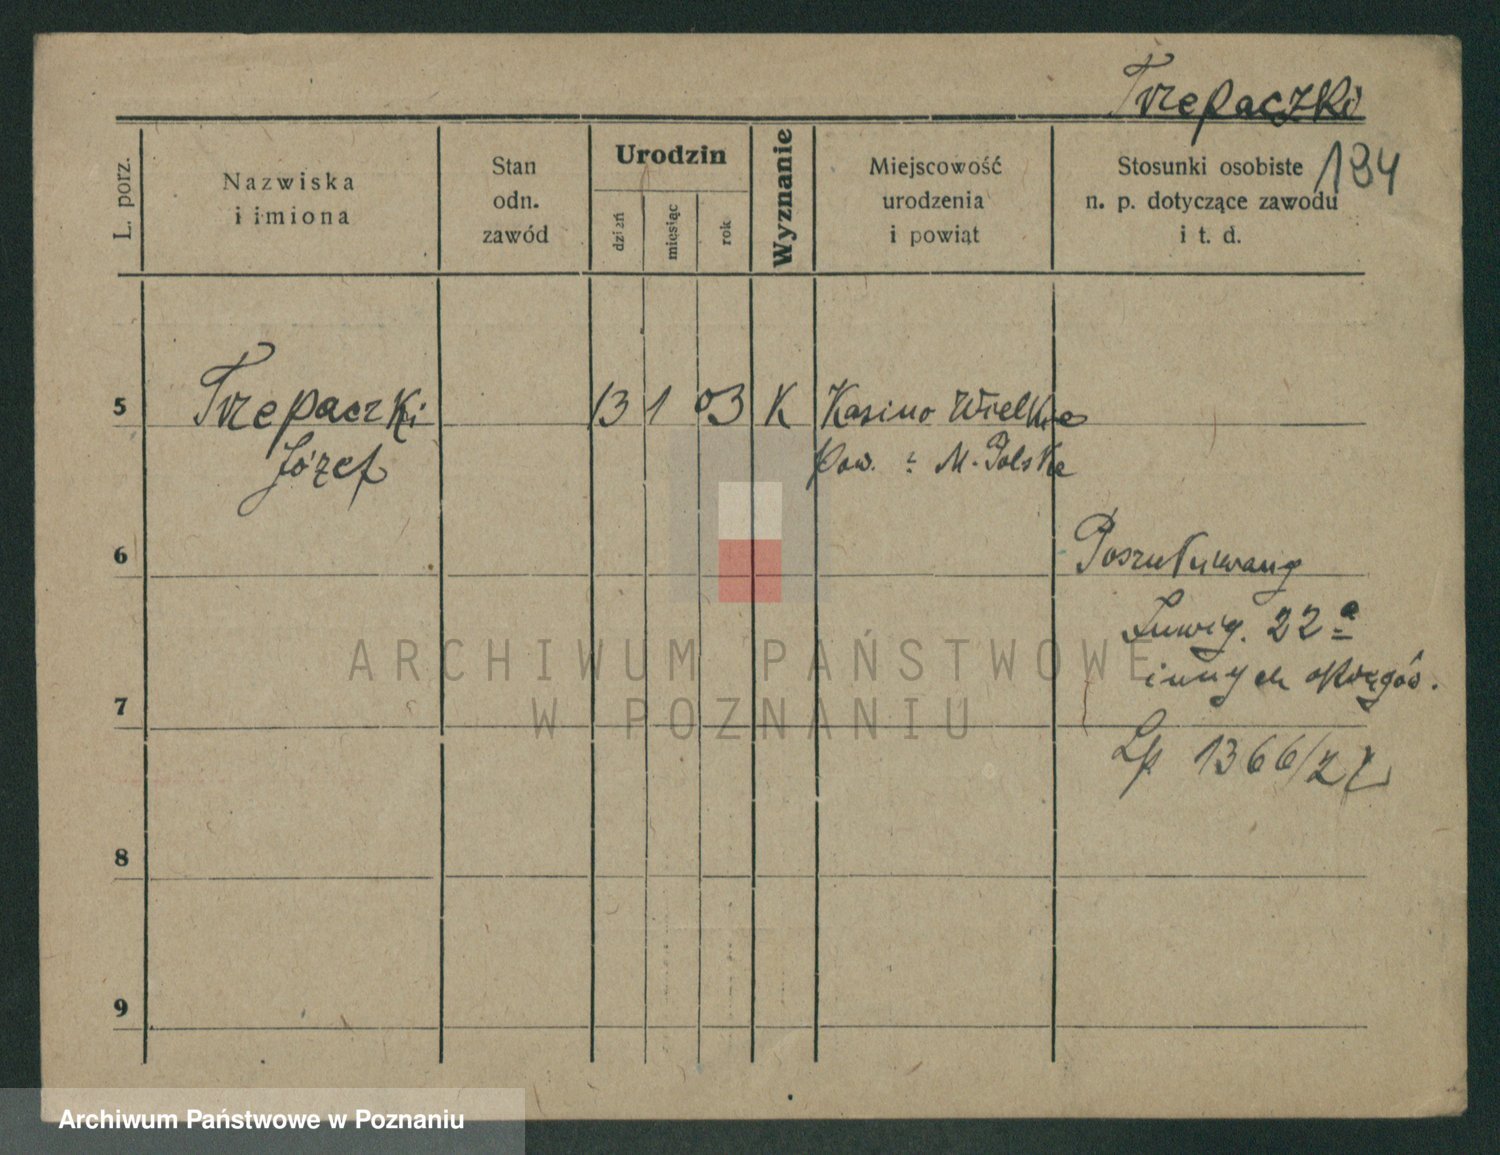 Trzepaczki
194
L. porz.
Nazwiska
i imiona
Stan
odn.
zawód
Urodzin
dzień
miesiąc
rok
Wyznanie
Miejscowość
urodzenia
i powiąt
Stosunki osobiste
n. p. dotyczące zawodu
i t. d.
5 Trzepaczki 13 1 03 K Kasino Wielkie
Józef Pow. : M. Polska
6 Poszukiwany
22a
innych okręgów.
7
Lp 1366/27
8
9
ARCHIWUM PAŃSTWOWE
W POZNANIU
Archiwum Państwowe w Poznaniu